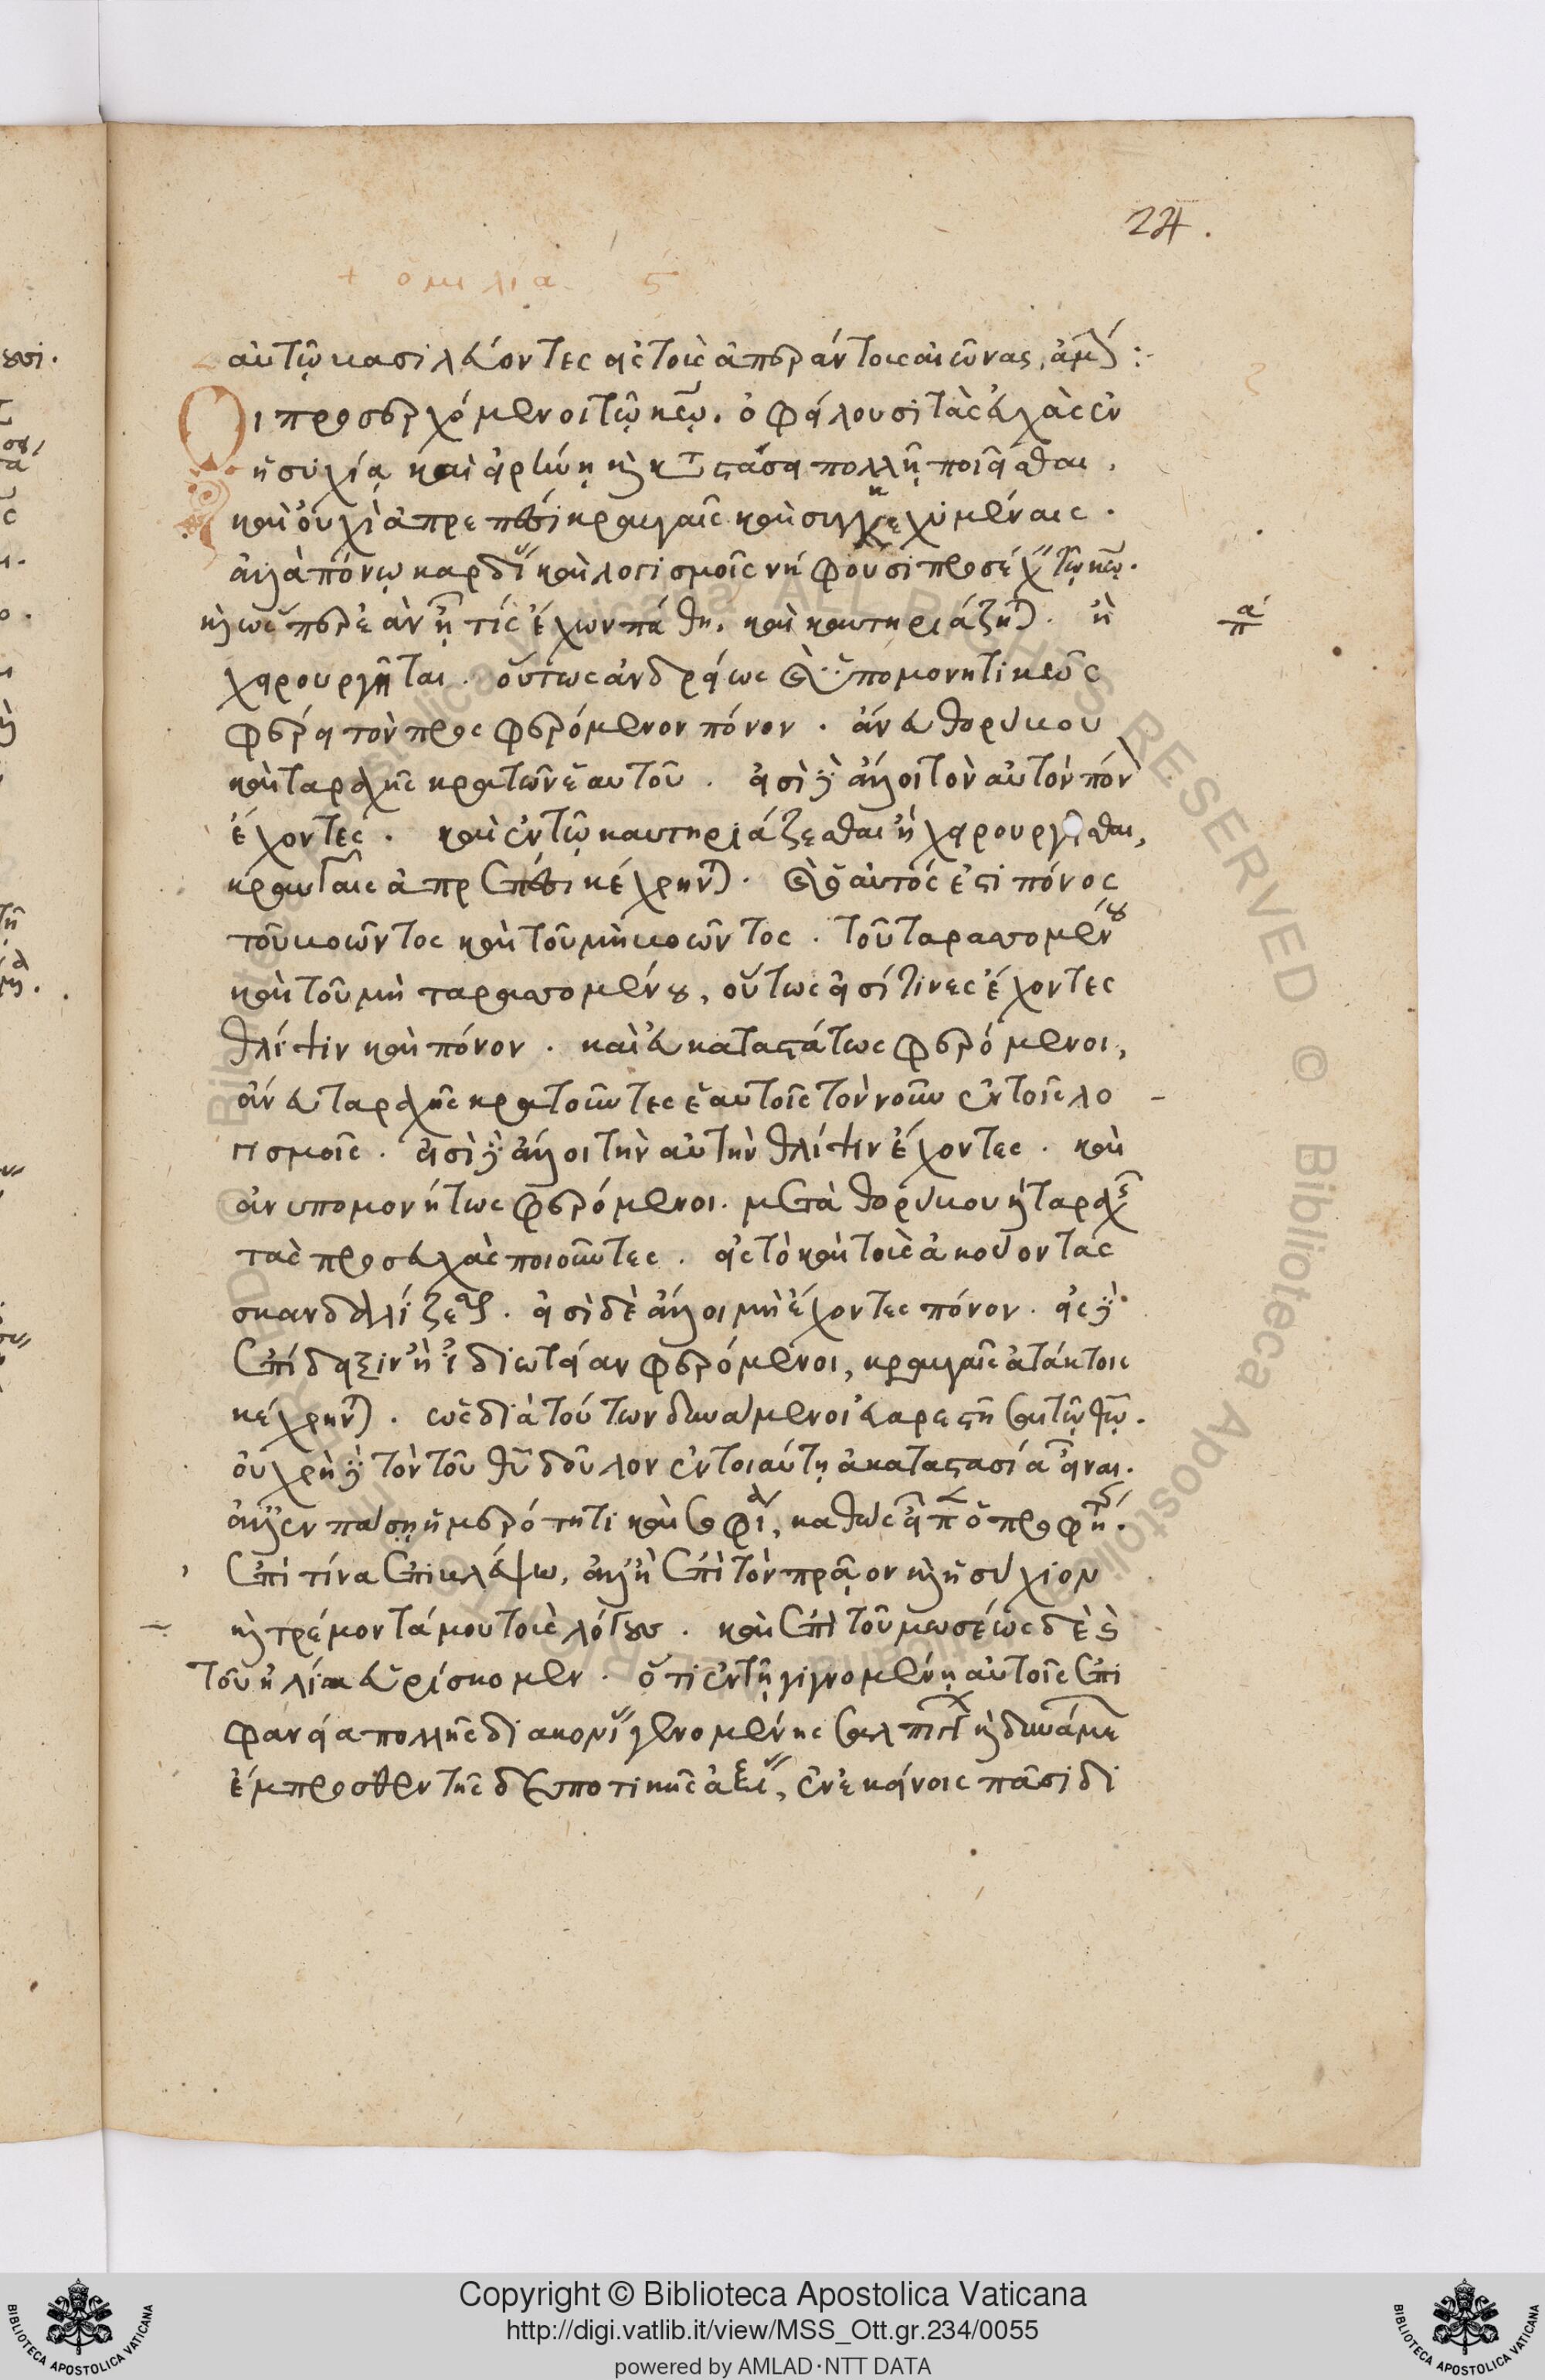 24.
+ ὁμιλία ς
αὐτῷ βασιλεύοντες εἰς τοὺς ἀπεράντους αἰῶνας, ἀμήν :-
Οἱ προσερχόμενοι τῷ κῷ. ὀφείλουσι τὰς εὐχὰς ἐν
ἡσυχίᾳ καὶ εἰρήνῃ κὶ καταστάσει πολλῇ ποιεῖσθαι,
καὶ οὐχὶ ἀπρεπέσι κραυγαῖς καὶ συγκεχυμέναις.
ἀλλὰ πόνῳ καρδίας καὶ λογισμοῖς νήφουσι προσέχειν τῷ κῷ.
κὶ ὥσπερ ἐὰν ᾖ τίς ἔχων πάθη, καὶ καυτηριάζηται. ἢ
χειρουργῆται. οὕτως ἀνδρείως καὶ ὑπομονητικῶς
φέρει τὸν προσφερόμενον πόνον. ἄνευ θορύβου
καὶ ταραχῆς κρατῶν ἑαυτοῦ. εἰσὶ γὰρ ἄλλοι τὸν αὐτὸν πόνον
ἔχοντες. καὶ ἐν τῷ καυτηριάζεσθαι ἢ χειρουργεῖσθαι,
κραυγαῖς ἀπρεπέσι κέχρηνται. καὶ ὁ αὐτός ἐστι πόνος
τοῦ βοῶντος καὶ τοῦ μὴ βοῶντος. τοῦ ταρασσομένου
καὶ τοῦ μὴ ταρασσομένου, οὕτως εἰσί τινες ἔχοντες
θλίψιν καὶ πόνον. καὶ εὐκαταστάτως φερόμενοι,
ἄνευ ταραχῆς κρατοῦντες ἑαυτοῖς τὸν νοῦν ἐν τοῖς λο
γισμοῖς. εἰσὶ γὰρ ἄλλοι τὴν αὐτὴν θλίψιν ἔχοντες. καὶ
ἀνυπομονήτως φερόμενοι. μετὰ θορύβου κὶ ταραχῆς
τὰς προσευχὰς ποιοῦντες. εἰς τὸ καὶ τοὺς ἀκούοντας
σκανδαλίζεσθαι. εἰσὶ δὲ ἄλλοι μὴ ἔχοντες πόνον. εἰς γὰρ
ἐπίδειξιν ἢ ἰδιωτείαν φερόμενοι, κραυγαῖς ἀτάκτοις
κέχρηνται. ὡς διὰ τούτων δυνάμενοι εὐαρεστῆσαι τῷ θῷ.
οὐ χρὴ γὰρ τὸν τοῦ θυ δοῦλον ἐν τοιαύτῃ ἀκαταστασίᾳ εἶναι.
ἀλλ' ἐν πάσῃ ἡμερότητι καὶ σοφίᾳ, καθὼς εἶπεν ὁ προφήτης.
ἐπὶ τίνα ἐπιβλέψω, ἀλλ' ἢ ἐπὶ τὸν πρᾷον κὶ ἡσύχιον
κὶ τρέμοντά μου τοὺς λόγους. καὶ ἐπὶ τοῦ μωσέως δὲ καὶ
τοῦ ἠλία εὑρίσκομεν. ὅτι ἐν τῇ γιγνομένῃ αὐτοῖς ἐπι
φανείᾳ πολλῆς διακονίας γενομένης σαλπίγγων κὶ δυνάμεων
ἔμπροσθεν τῆς δεσποτικῆς ἀξίας, ἐν ἐκείνοις πᾶσι δι
Copyright © Biblioteca Apostolica Vaticana
http://digi.vatlib.it/view/MSS_Ott.gr.234/0055
powered by AMLAD·NTT DATA